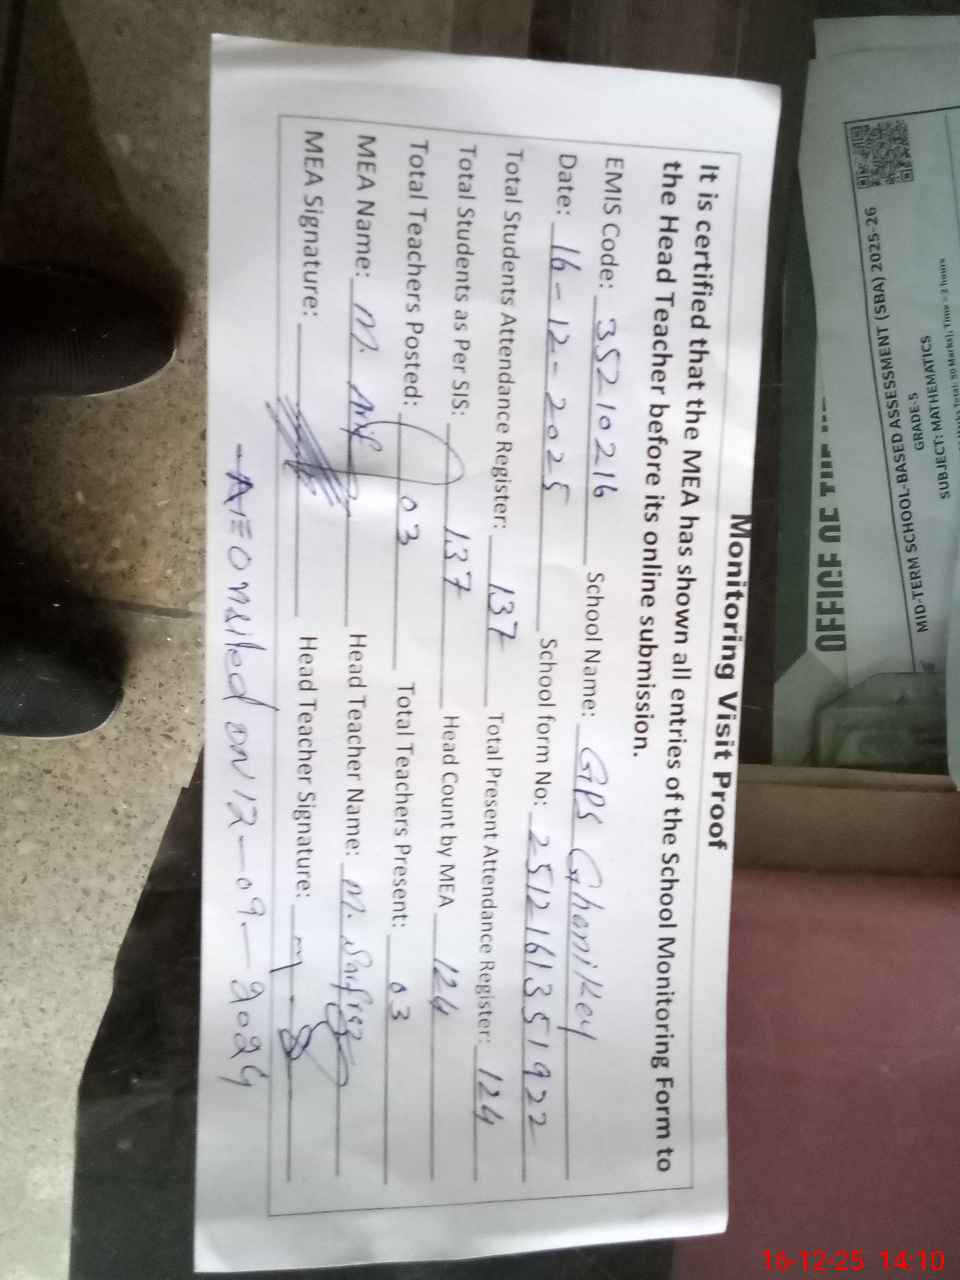 Monitoring Visit Proof
It is certified that the MEA has shown all entries of the School Monitoring Form to
the Head Teacher before its online submission.
EMIS Code: 35210216 School Name: GPS Ghonikey
Date: 16-12-2025 School form No: 2512161351922
Total Students Attendance Register: 137 Total Present Attendance Register: 124
Total Students as Per SIS: 137 Head Count by MEA 124
Total Teachers Posted: 03 Total Teachers Present: 03
MEA Name: M. Arif Head Teacher Name: M. Sarfraz
MEA Signature: Head Teacher Signature:
- AEO visited on 12-09-2024
OFFICE OF THE
MID-TERM SCHOOL-BASED ASSESSMENT (SBA) 2025-26
GRADE-5
SUBJECT: MATHEMATICS
Total: 50 Marks), Time = 2 hours
16-12-25 14:10